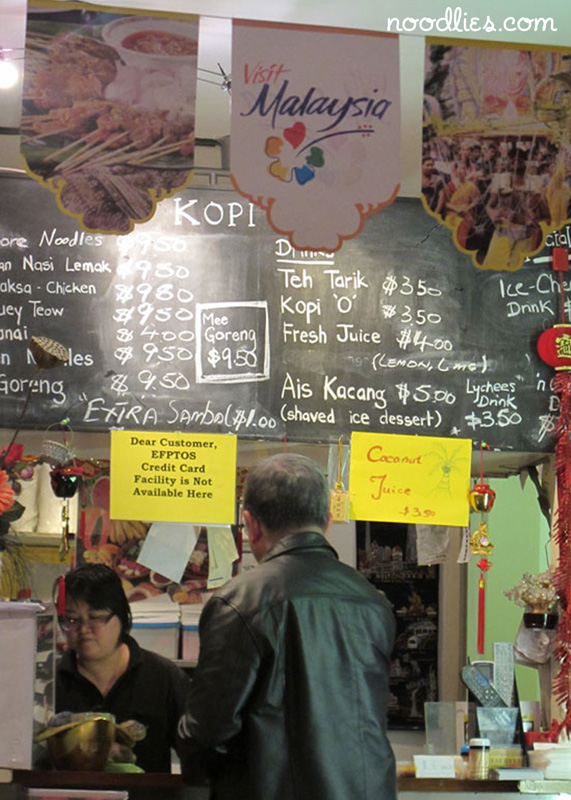 noodlies.com
Visit
Malaysia
KOPI
ore Noodles $9.50
an Nasi Lemak $9.50
aksa - Chicken $9.80
uey Teow $9.50
anai $4.00
n N les $9.50
Goreng $9.50
"EXTRA Sambal $1.00
Mee
Goreng
$9.50
Drinks
Teh Tarik $3.50
Kopi 'O' $3.50
Fresh Juice $4.00
(LEMON, Lime)
Ais Kacang $5.00
(shaved ice dessert)
Ice-Che
Drink $
Lychees
Drink
$3.50
Dear Customer,
EFPTOS
Credit Card
Facility is Not
Available Here
Coconut
Juice
$3.50